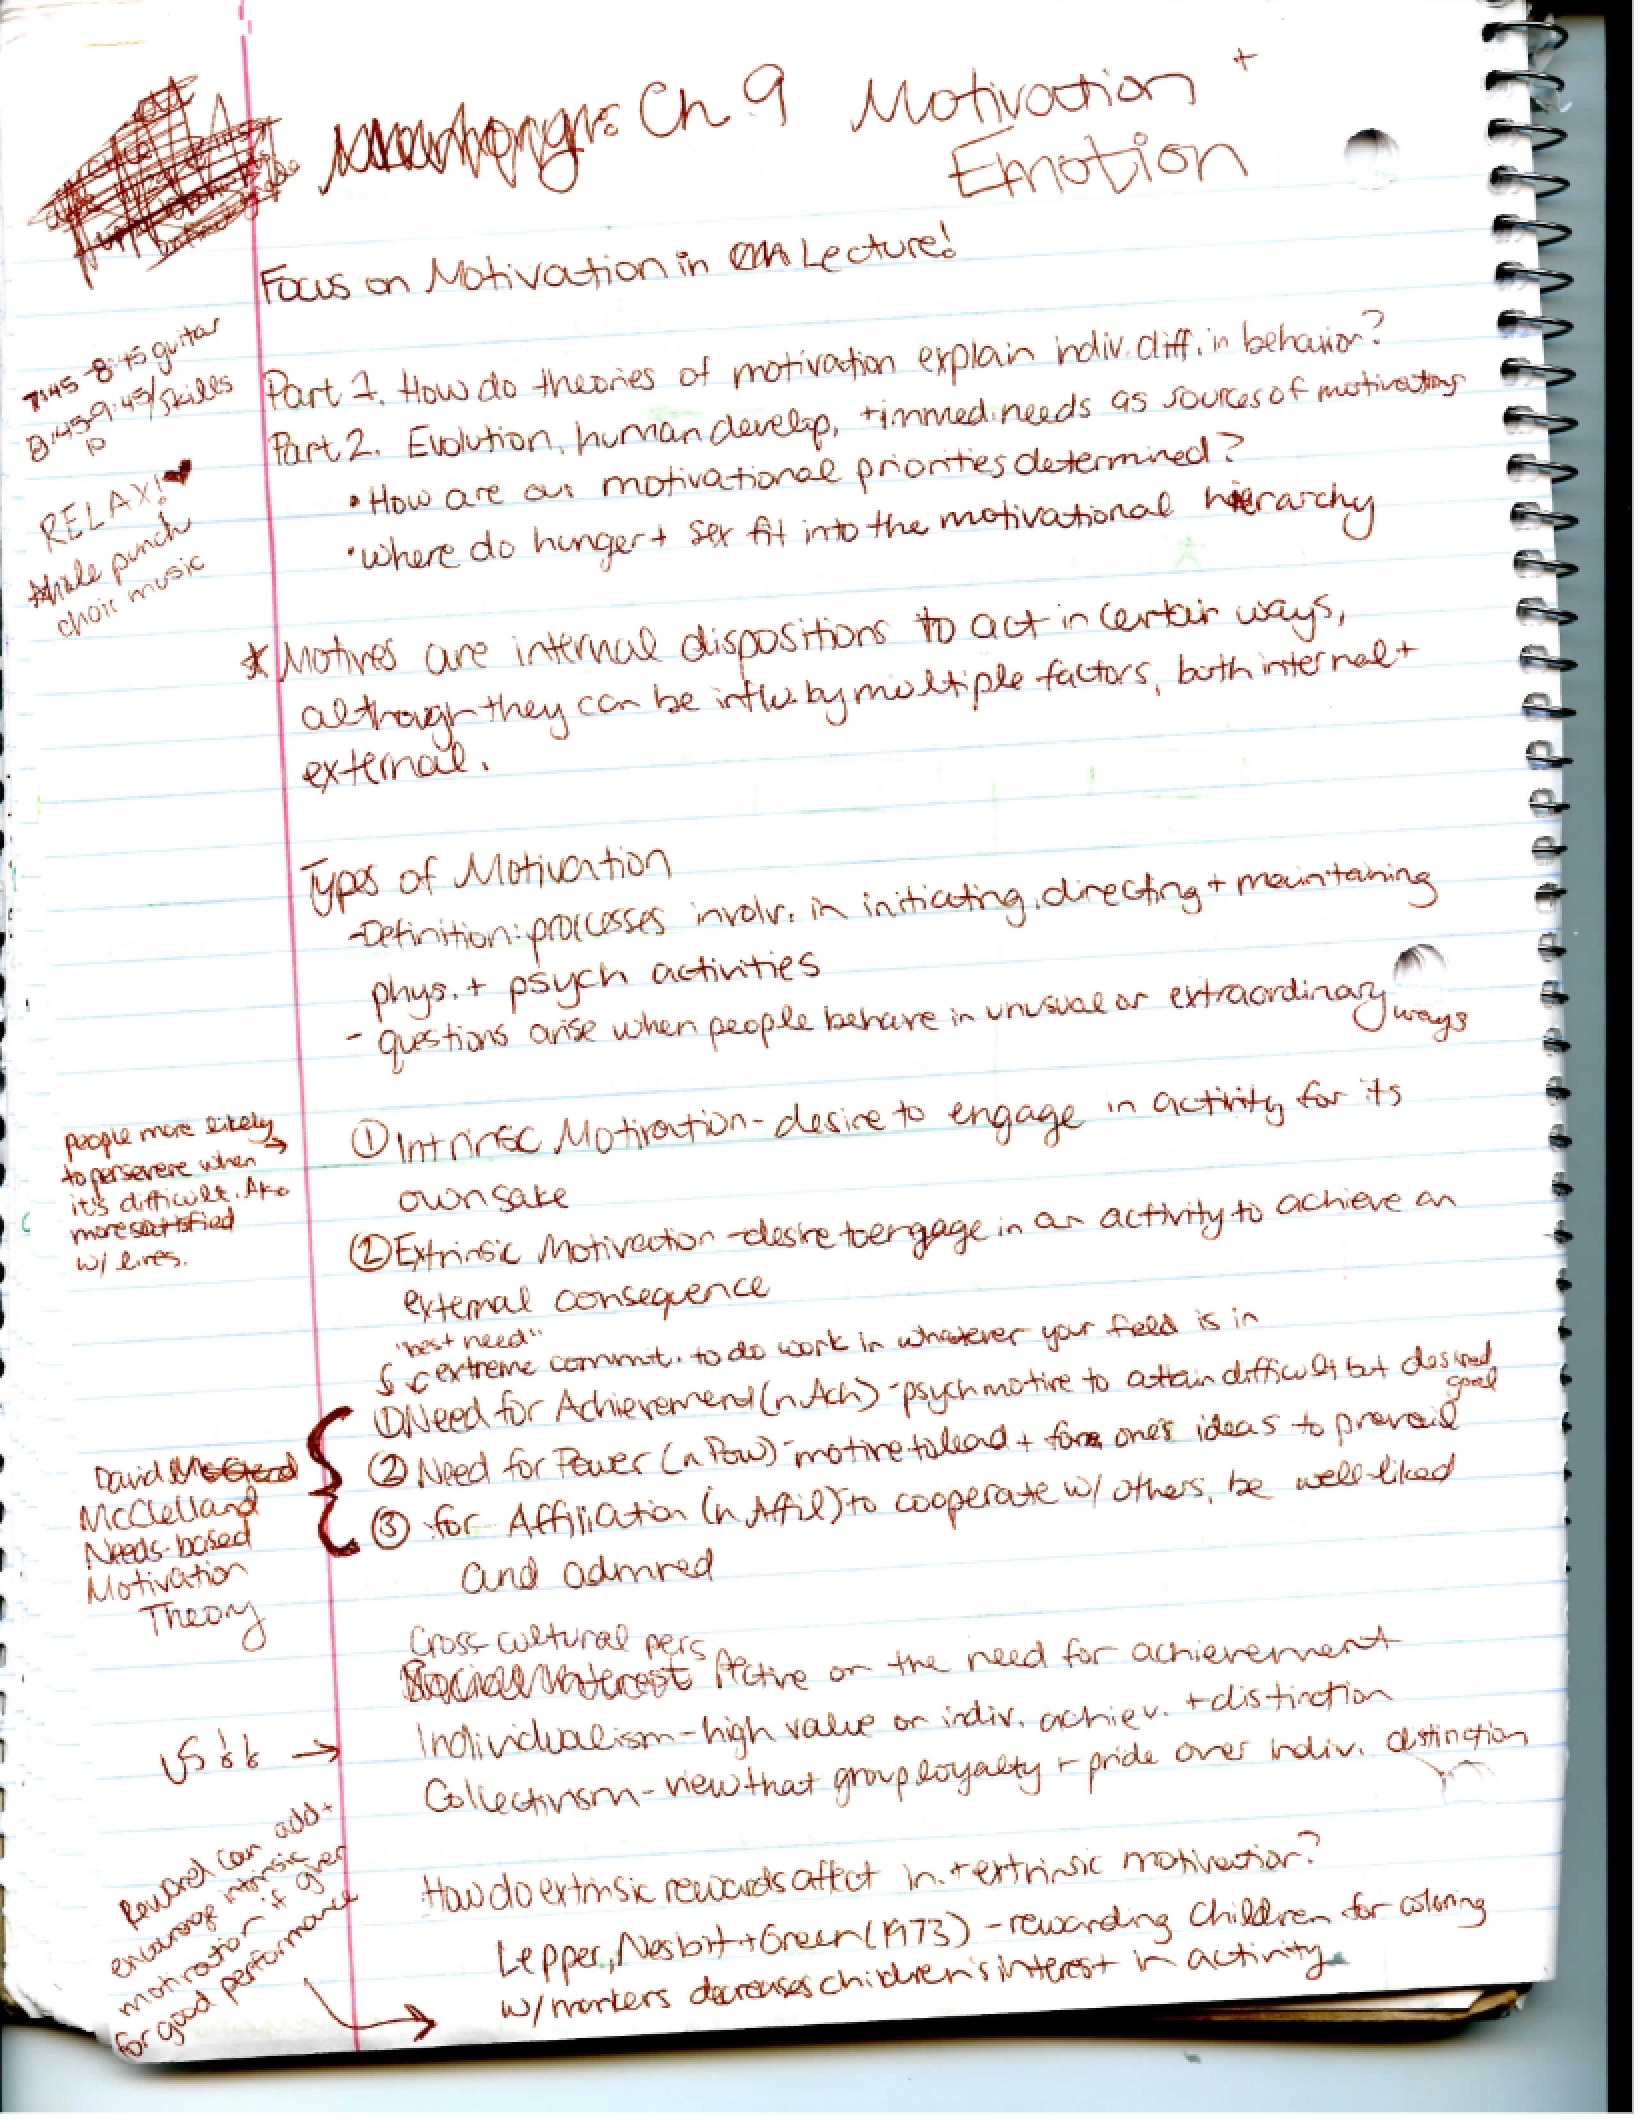 Ch 9 Motivation +
Emotion
Focus on Motivation in Lecture!
7:45-8:45 guitar
8:45-9:45/skills
10
RELAX!♥
*hole punch
choir music
Part 1. How do theories of motivation explain indiv. diff. in behavior?
Part 2. Evolution, human develop, + immed. needs as sources of motivation
• How are our motivational priorities determined?
• Where do hunger + sex fit into the motivational hierarchy
* Motives are internal dispositions to act in certain ways,
although they can be influ. by multiple factors, both internal +
external.
Types of Motivation
- Definition: processes involv. in initiating, directing + maintaining
phys. + psych activities
- questions arise when people behave in unusual or extraordinary ways
people more likely →
to persevere when
it's difficult. Also
more satisfied
w/ lives.
① Intrinsic Motivation - desire to engage in activity for its
own sake
② Extrinsic Motivation - desire to engage in an activity to achieve an
external consequence
"best need"
extreme commit. to do work in whatever your field is in
① Need for Achievement (n Ach) - psych motive to attain difficult, but desired goal
② Need for Power (n Pow) - motive to lead + for one's ideas to prevail
③ for Affiliation (n Affil) to cooperate w/ others, be well-liked
and admired
David
McClelland
Needs-based
Motivation
Theory
Cross-cultural pers
pective on the need for achievement
US →
Individualism - high value on indiv. achiev. + distinction
Collectivism - view that group loyalty + pride over indiv. distinction
Reward can add +
encourage intrinsic
motivation if given
for good performance
How do extrinsic rewards affect in. + extrinsic motivation?
Lepper, Nesbit + Green (1973) - rewarding children for coloring
w/ markers decreases children's interest in activity